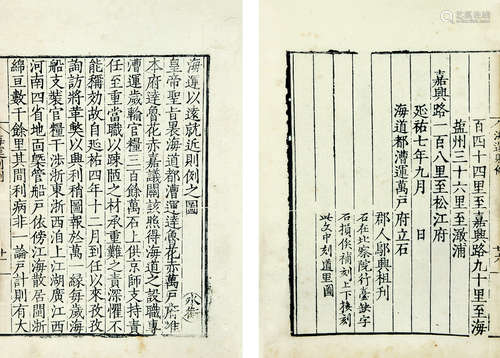 百四十四里至上海九十里至海
鹽州三十六里至澉浦
嘉興路一百八里至松江府
延祐七年九月 日
海道都漕運萬戶府立石
郡人鄔興祖刊
石在北察院行臺缺字
石損俟補刻上下挨刻
此文中刻道里圖
海運以遠就近則例之圖
皇帝聖旨裏海道都漕運萬戶府准
本府達魯花赤嘉議關該照得海道之設職專
漕運歲輸官糧三百餘萬石上供京師支持責
任至重當職以踈之材承重難之責深懼不
能稱効故自延祐四年十二月到任以來孜孜
詢訪將革獘以興利稍圖報於萬一緣每歲海
船支裝官糧干涉浙東浙西泊上江湖廣江西
河南四省地面槩管船戶依傍江海散居間浙
綿亘數千餘里其間利病非一論戶計則有大